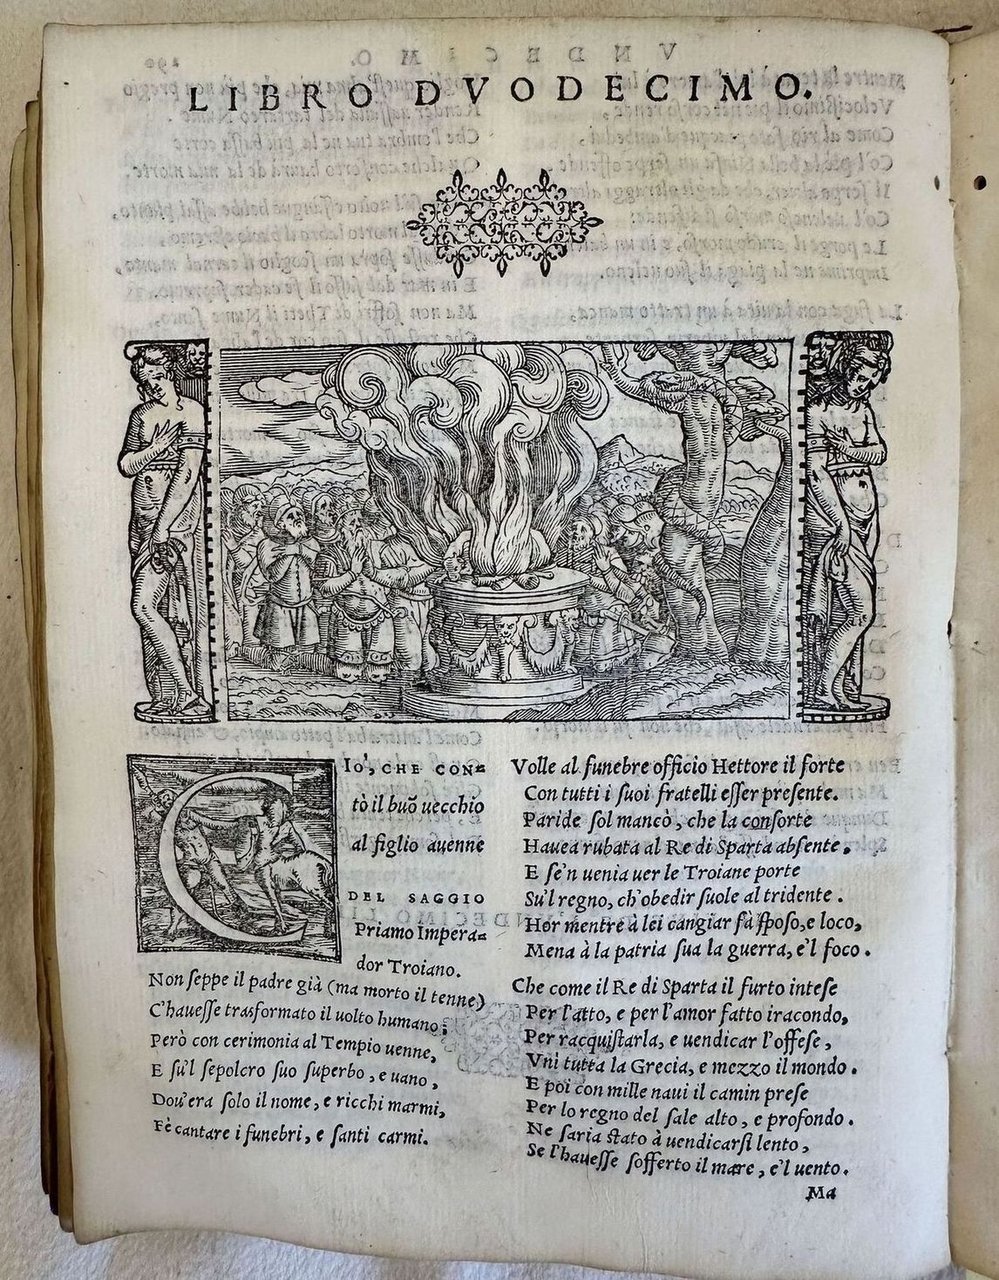 LIBRO DVODECIMO.
CIO', CHE CON=
tò il buõ uecchio
al figlio auenne
DEL SAGGIO
Priamo Impera=
dor Troiano.
Non ſeppe il padre già (ma morto il tenne)
C'haueſſe trasformato il uolto humano;
Però con cerimonia al Tempio uenne,
E ſu'l ſepolcro ſuo ſuperbo, e uano,
Dou'era ſolo il nome, e ricchi marmi,
Fè cantare i funebri, e ſanti carmi.
Volle al funebre officio Hettore il forte
Con tutti i ſuoi fratelli eſſer preſente.
Paride ſol mancò, che la conſorte
Hauea rubata al Re di Sparta abſente.
E ſe'n uenia uer le Troiane porte
Su'l regno, ch'obedir ſuole al tridente.
Hor mentre à lei cangiar fà ſpoſo, e loco,
Mena à la patria ſua la guerra, e'l foco.
Che come il Re di Sparta il furto inteſe
Per l'atto, e per l'amor fatto iracondo,
Per racquiſtarla, e uendicar l'offeſe,
Vnì tutta la Grecia, e mezzo il mondo.
E poi con mille naui il camin preſe
Per lo regno del ſale alto, e profondo.
Ne ſaria ſtato à uendicarſi lento,
Se l'haueſſe ſofferto il mare, e'l uento.
Ma